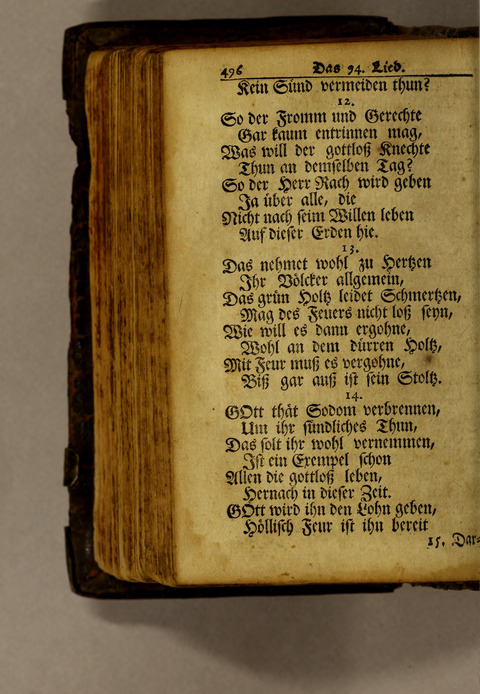 496 Das 94. Lied.
Kein Sünd vermeiden thun?
12.
So der Fromm und Gerechte
Gar kaum entrinnen mag,
Was will der gottloß Knechte
Thun an demselben Tag?
So der Herr Rach wird geben
Ja über alle, die
Nicht nach seim Willen leben
Auf dieser Erden hie.
13.
Das nehmet wohl zu Hertzen
Ihr Völcker allgemein,
Das grün Holtz leidet Schmertzen,
Mag des Feuers nicht loß seyn,
Wie will es dann ergohne,
Wohl an dem dürren Holtz,
Mit Feur muß es vergohne,
Biß gar auß ist sein Stoltz.
14.
GOtt thät Sodom verbrennen,
Um ihr sündliches Thun,
Das solt ihr wohl vernemmen,
Ist ein Exempel schon
Allen die gottloß leben,
Hernach in dieser Zeit.
GOtt wird ihn den Lohn geben,
Höllisch Feur ist ihn bereit
15. Dar-